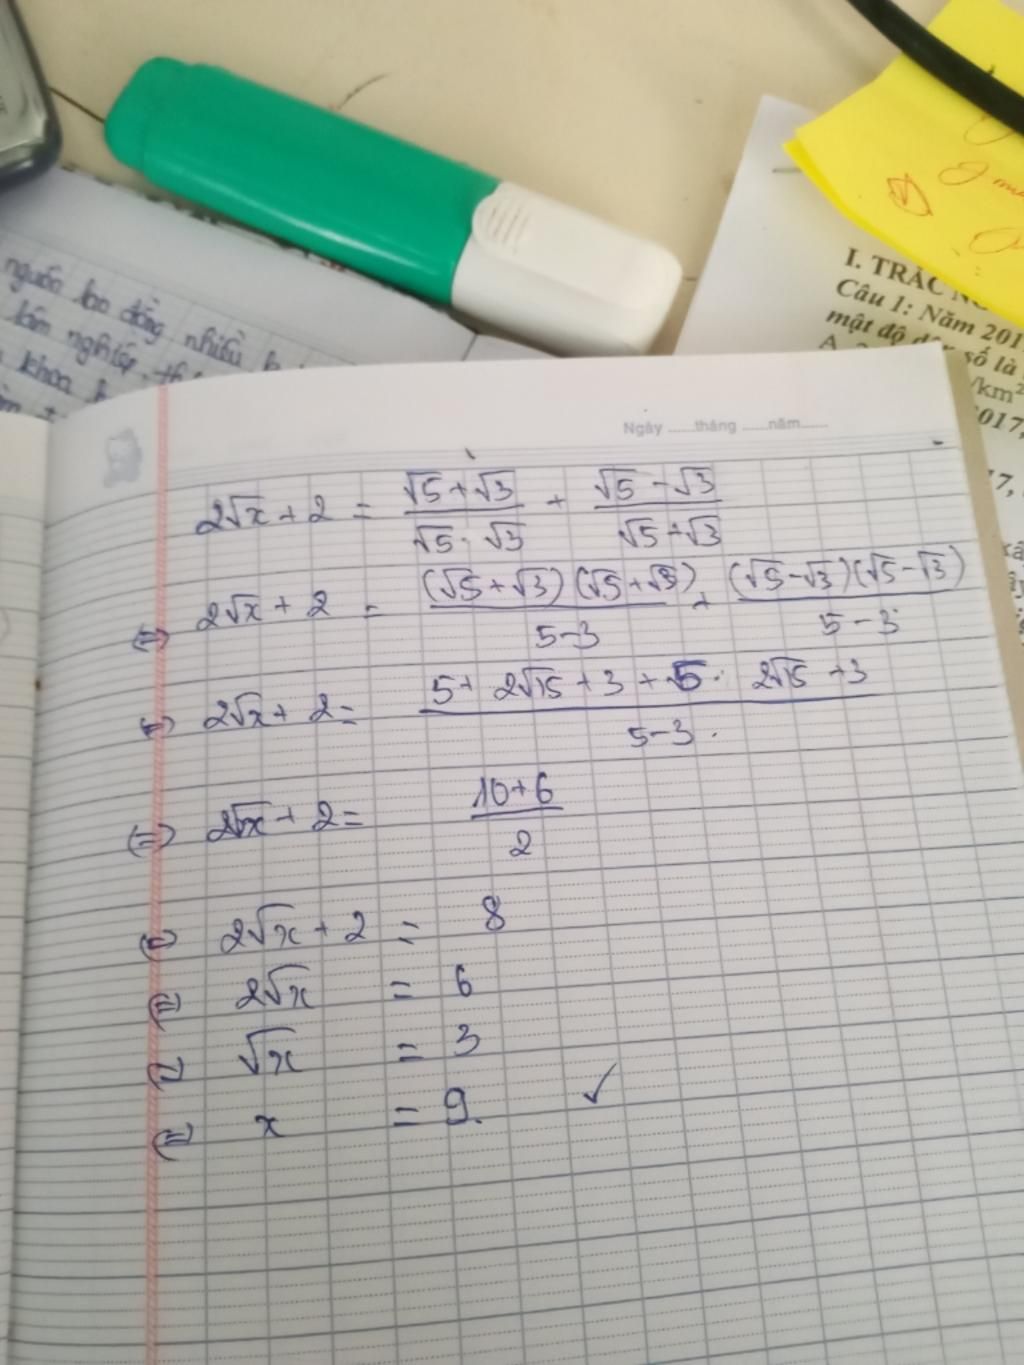 nguồn lao động nhiều
lâm nghiệp
khoa
I. TRẮC
Câu 1: Năm 201
mật độ dân số là
/km²
2017,
Ngày ......tháng ......năm......
2√x + 2 = (√5 + √3)/(√5 - √3) + (√5 - √3)/(√5 + √3)
⇔ 2√x + 2 = (√5 + √3)(√5 + √3)/(5 - 3) + (√5 - √3)(√5 - √3)/(5 - 3)
⇔ 2√x + 2 = (5 + 2√15 + 3 + 5 - 2√15 + 3)/(5 - 3)
⇔ 2√x + 2 = (10 + 6)/2
⇔ 2√x + 2 = 8
⇔ 2√x = 6
⇔ √x = 3
⇔ x = 9. ✓